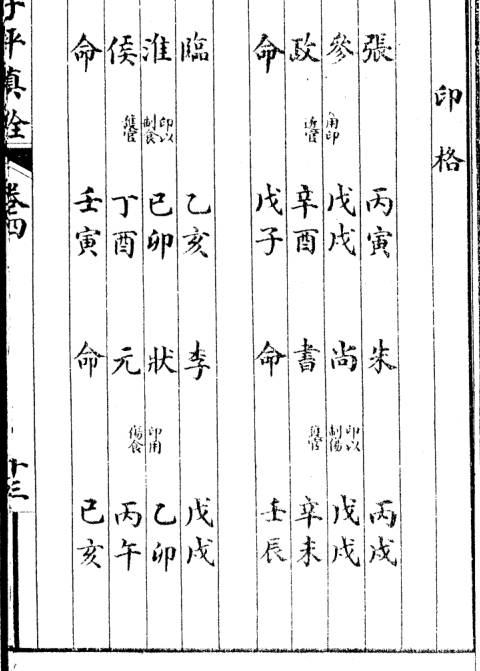 印格
張 丙寅 朱 丙戌
參 用印 戊戌 尚 印以制傷 戊戌
政 官 辛酉 書 護官 辛未
命 戊子 命 壬辰
臨 乙亥 李 戊戌
淮 印以制食 已卯 狀 印用 乙卯
侯 護官 丁酉 元 傷食 丙午
命 壬寅 命 已亥
子平真詮 卷四 十三